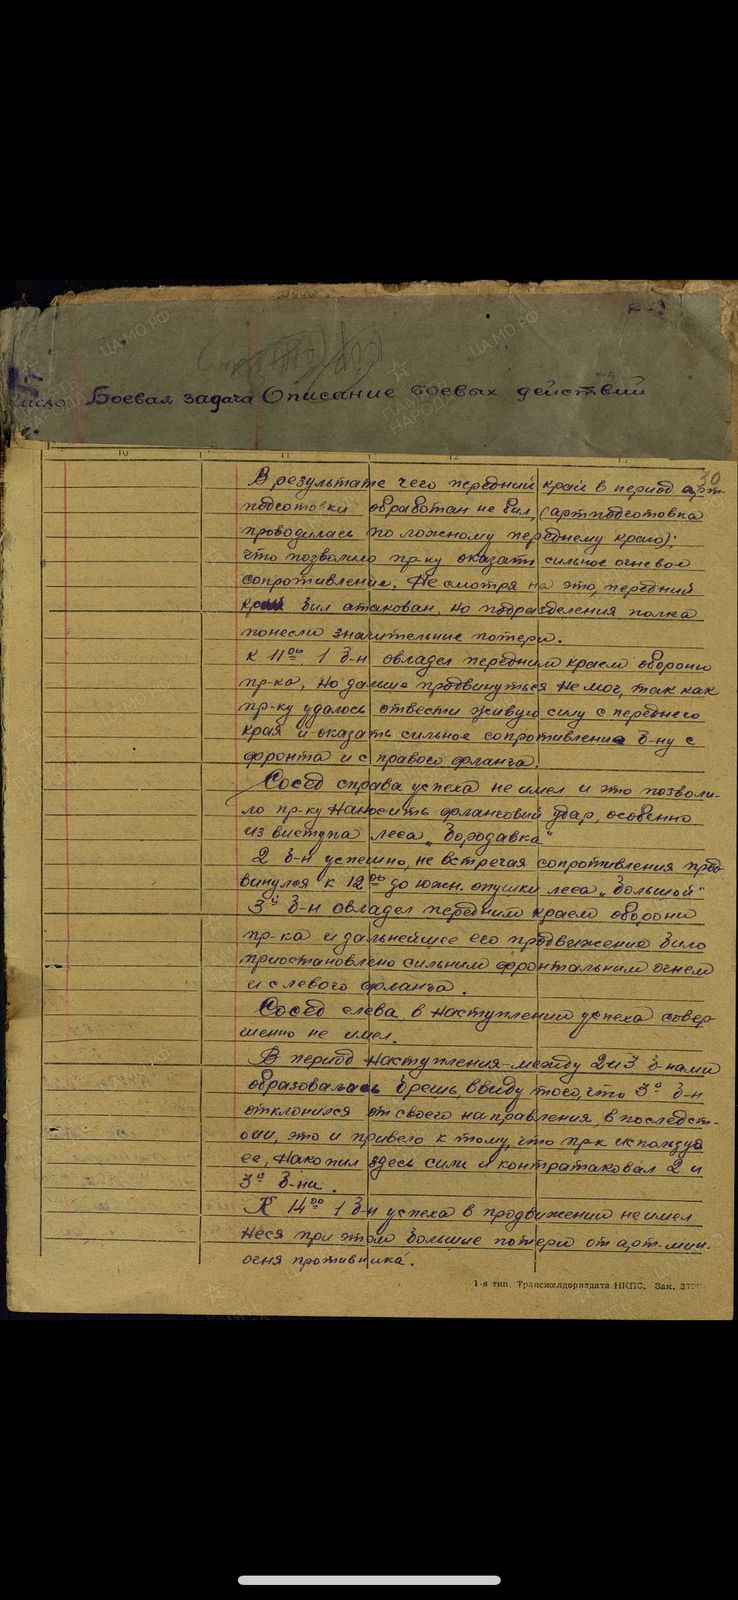 30
Число Боевая задача Описание боевых действий
10 11 12
В результате чего передний край в период арт-
подготовки обработан не был, (артподготовка
проводилась по ложному переднему краю);
что позволило пр-ку оказать сильное огневое
сопротивление. Не смотря на это, передний
край был атакован, но подразделения полка
понесли значительные потери.
к 11⁰⁰ 1 б-н овладел передним краем обороны
пр-ка, но дальше продвинуться не мог, так как
пр-ку удалось отвести живую силу с переднего
края и оказать сильное сопротивление б-ну с
фронта и с правого фланга.
Сосед справа успеха не имел и это позволи-
ло пр-ку наносить фланговый удар, особенно
из выступа леса „Бородавка"
2 б-н успешно, не встречая сопротивления прод-
винулся к 12⁰⁰ до южн. опушки леса „Большой"
3й б-н овладел передним краем обороны
пр-ка и дальнейшее его продвижение было
приостановлено сильным фронтальным огнем
и с левого фланга.
Сосед слева, в наступлении успеха совер-
шенно не имел.
В период наступления между 2 и 3 б-нами
образовалась брешь, ввиду того, что 3й б-н
отклонился от своего направления, в последст-
вии, это и привело к тому, что пр-к используя
ее, накопил здесь силы и контратаковал 2 и
3й б-ны.
К 14⁰⁰ 1 б-н успеха в продвижении не имел
неся при этом большие потери от арт-мин.
огня противника.
1-я тип. Трансжелдориздата НКПС. Зак.
ЦАМО РФ